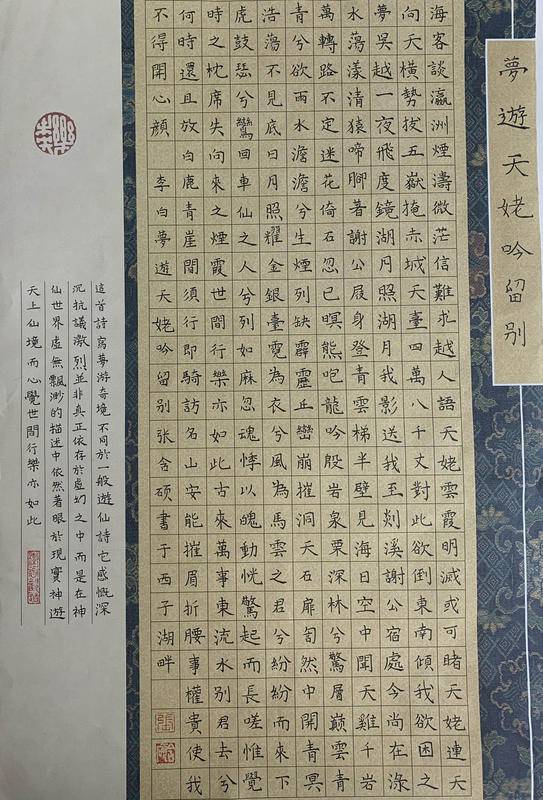 夢遊天姥吟留別
海客談瀛洲煙濤微茫信難求越人語天姥雲霞明滅或可睹天姥連天
向天橫勢拔五嶽掩赤城天臺四萬八千丈對此欲倒東南傾我欲因之
夢吳越一夜飛度鏡湖月照湖月我影送我至剡溪謝公宿處今尚在淥
水蕩漾清猿啼腳著謝公屐身登青雲梯半壁見海日空中聞天雞千岩
萬轉路不定迷花倚石忽已暝熊咆龍吟殷岩泉栗深林兮驚層巔雲青
青兮欲雨水澹澹兮生煙列缺霹靂丘巒崩摧洞天石扉訇然中開青冥
浩蕩不見底日月照耀金銀臺霓為衣兮風為馬雲之君兮紛紛而來下
虎鼓瑟兮鸞回車仙之人兮列如麻忽魂悸以魄動恍驚起而長嗟惟覺
時之枕席失向來之煙霞世間行樂亦如此古來萬事東流水別君去兮
何時還且放白鹿青崖間須行即騎訪名山安能摧眉折腰事權貴使我
不得開心顏 李白夢遊天姥吟留別張含硕書于西子湖畔
這首詩寫夢游奇境不同於一般遊仙詩它感慨深
沉抗議激烈並非真正依存於虛幻之中而是在神
仙世界虛無飄渺的描述中依然著眼於現實神遊
天上仙境而心覺世間行樂亦如此